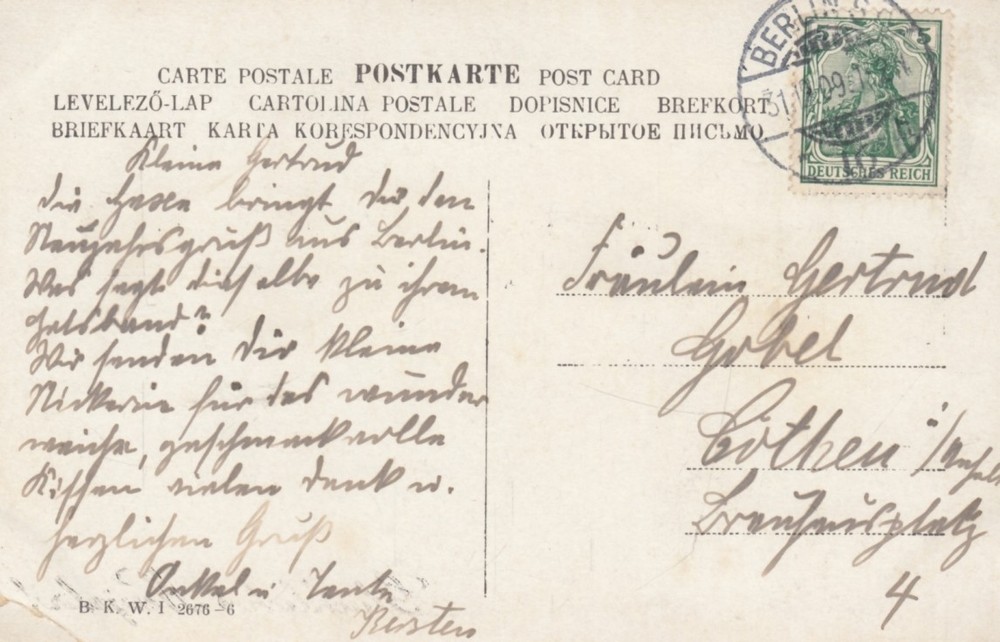 CARTE POSTALE POSTKARTE POST CARD
LEVELEZŐ-LAP CARTOLINA POSTALE DOPISNICE BREFKORT
BRIEFKAART KARTA KORESPONDENCYJNA ОТКРЫТОЕ ПИСЬМО
BERLIN
5
DEUTSCHES REICH
Kleine Gertrud
die Hexe bringt dir den
Neujahrsgruß aus Berlin.
Was sagt dieselbe zu ihrem
Halsband?
Wir senden dir kleine
für das wunder
weiche, geschmackvolle
Kissen vielen Dank u.
herzlichen Gruß
Onkel u Tante
Fräulein Gertrud
Göbel
Cöthen i/Anhalt
Brauhausplatz
4
B. K. W. I 2676-6